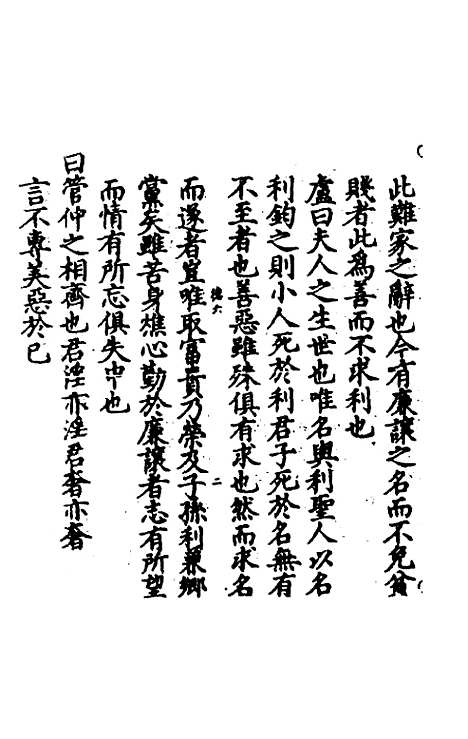 此難家之辭也今有廉讓之名而不免貧
賤者此為善而不求利也
盧曰夫人之生世也唯名與利聖人以名
利鈞之則小人死於利君子死於名無有
不至者也善惡雖殊俱有求也然而求名
德六 二
而遂者豈唯取富貴乃榮及子孫利兼鄉
黨矣雖苦身燋心勤於廉讓者志有所望
而情有所忘俱失中也
曰管仲之相齊也君淫亦淫君奢亦奢
言不專美惡於已